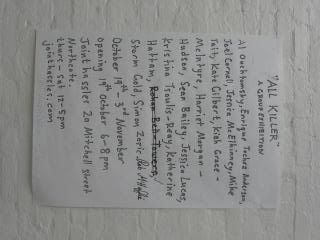 "AIL KILLER"
A GROUP EXHIBITION
Al Ouchtomsky, Enrique Tochez Anderson,
Joel Cornell, Jessica McElhinney, Mike
Tait, Kate Gilbert, Kiah Grace -
McIntyre, Harriet Morgan -
Hudson, Sean Bailey, Jessica Lucas,
Kristina Tsoulis-Reay, Katherine
Hattam,
Storm Gold, Simon Zoric,
October 19th - 3rd November
opening 19th October 6-8pm
Joint hassles 2a Mitchell street
Northcote.
thurs - sat 12-5pm
jointhassles.com